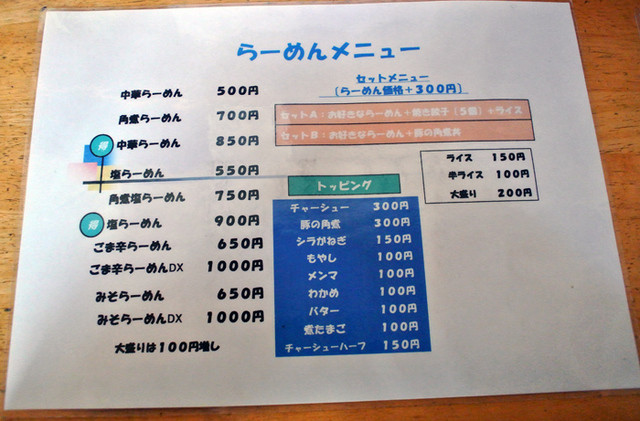 らーめんメニュー
中華らーめん 500円
角煮らーめん 700円
得 中華らーめん 850円
塩らーめん 550円
角煮塩らーめん 750円
得 塩らーめん 900円
ごま辛らーめん 650円
ごま辛らーめんDX 1000円
みそらーめん 650円
みそらーめんDX 1000円
大盛りは100円増し
セットメニュー
(らーめん価格+300円)
セットA:お好きならーめん+焼き餃子(5個)+ライス
セットB:お好きならーめん+豚の角煮丼
ライス 150円
半ライス 100円
大盛り 200円
トッピング
チャーシュー 300円
豚の角煮 300円
シラガねぎ 150円
もやし 100円
メンマ 100円
わかめ 100円
バター 100円
煮たまご 100円
チャーシューハーフ 150円